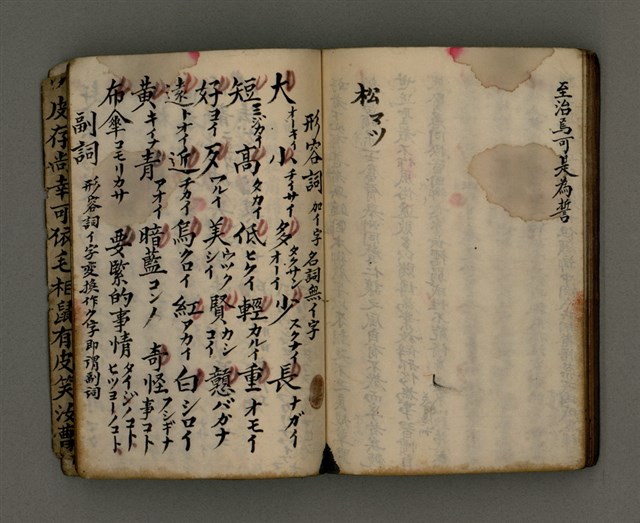 至治焉可是為誓
松 マツ
形容詞 加イ字 名詞無イ字
大 オーキイ 小 チイサイ 多 タクサン オーイ 少 スクナイ 長 ナガイ
短 ミジカイ 高 タカイ 低 ヒクイ 輕 カルイ 重 オモイ
好 ヨイ 歹 ワルイ 美 ウツクシイ 賢 カシコイ 戇 バガナ
遠 トオイ 近 チカイ 烏 クロイ 紅 アカイ 白 シロイ
黃 キイナ 青 アオイ 暗藍 コンノ 奇怪事 フシギナコト
布傘 コモリカサ 要緊的事情 タイジノコト ヒツヨーノコト
副詞 形容詞イ字変換作ク字即谓副詞
皮存尚幸可依毛相鼠有皮笑汝曹